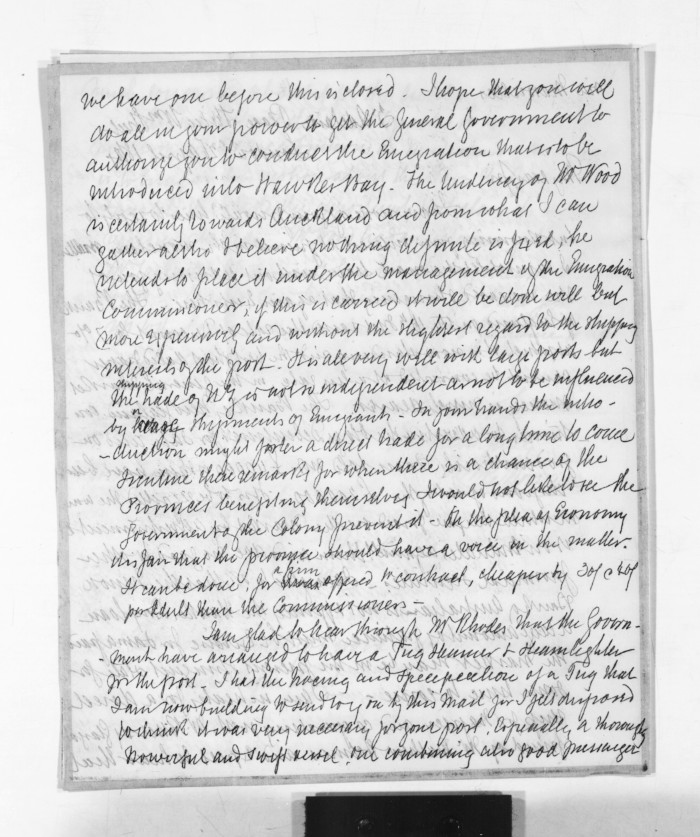 we have one before this is closed. I hope that you will
do all in your power to get the General Government to
authorize you to conduct the Emigration that is to be
introduced into Hawkes Bay. The tendency of Mr Wood
is certainly towards Auckland and from what I can
gather altho I believe nothing definite is fixed, he
intends to place it under the management of the Emigration
Commissioner, if this is carried it will be done well but
more expensively and without the slightest regard to the shipping
interests of the port. It is all very well with large ports but
shipping
the trade of NZ is not so independent as not to be influenced
by shipments of Emigrants. In your hands the intro-
-duction might foster a direct trade for a long time to come
I these remarks for when there is a chance of the
Provinces benefiting themselves I would not like to see the
Government of the Colony prevent it - On the plea of Economy
it is fair that the province should have a voice in the matter.
It can be done, for a firm offered to contract, cheaper by 30/ @ 20/
per Adult than the Commissioners -
I am glad to hear through Mr Rhodes that the Govern-
-ment have arranged to have a Tug Steamer & Steam lighter
for the port. I had the tracing and specification of a Tug that
I am now building to send to you by this Mail for I felt disposed
to think it was very necessary for your port. Especially a thoroughly
powerful and swift vessel, one combining also good passenger